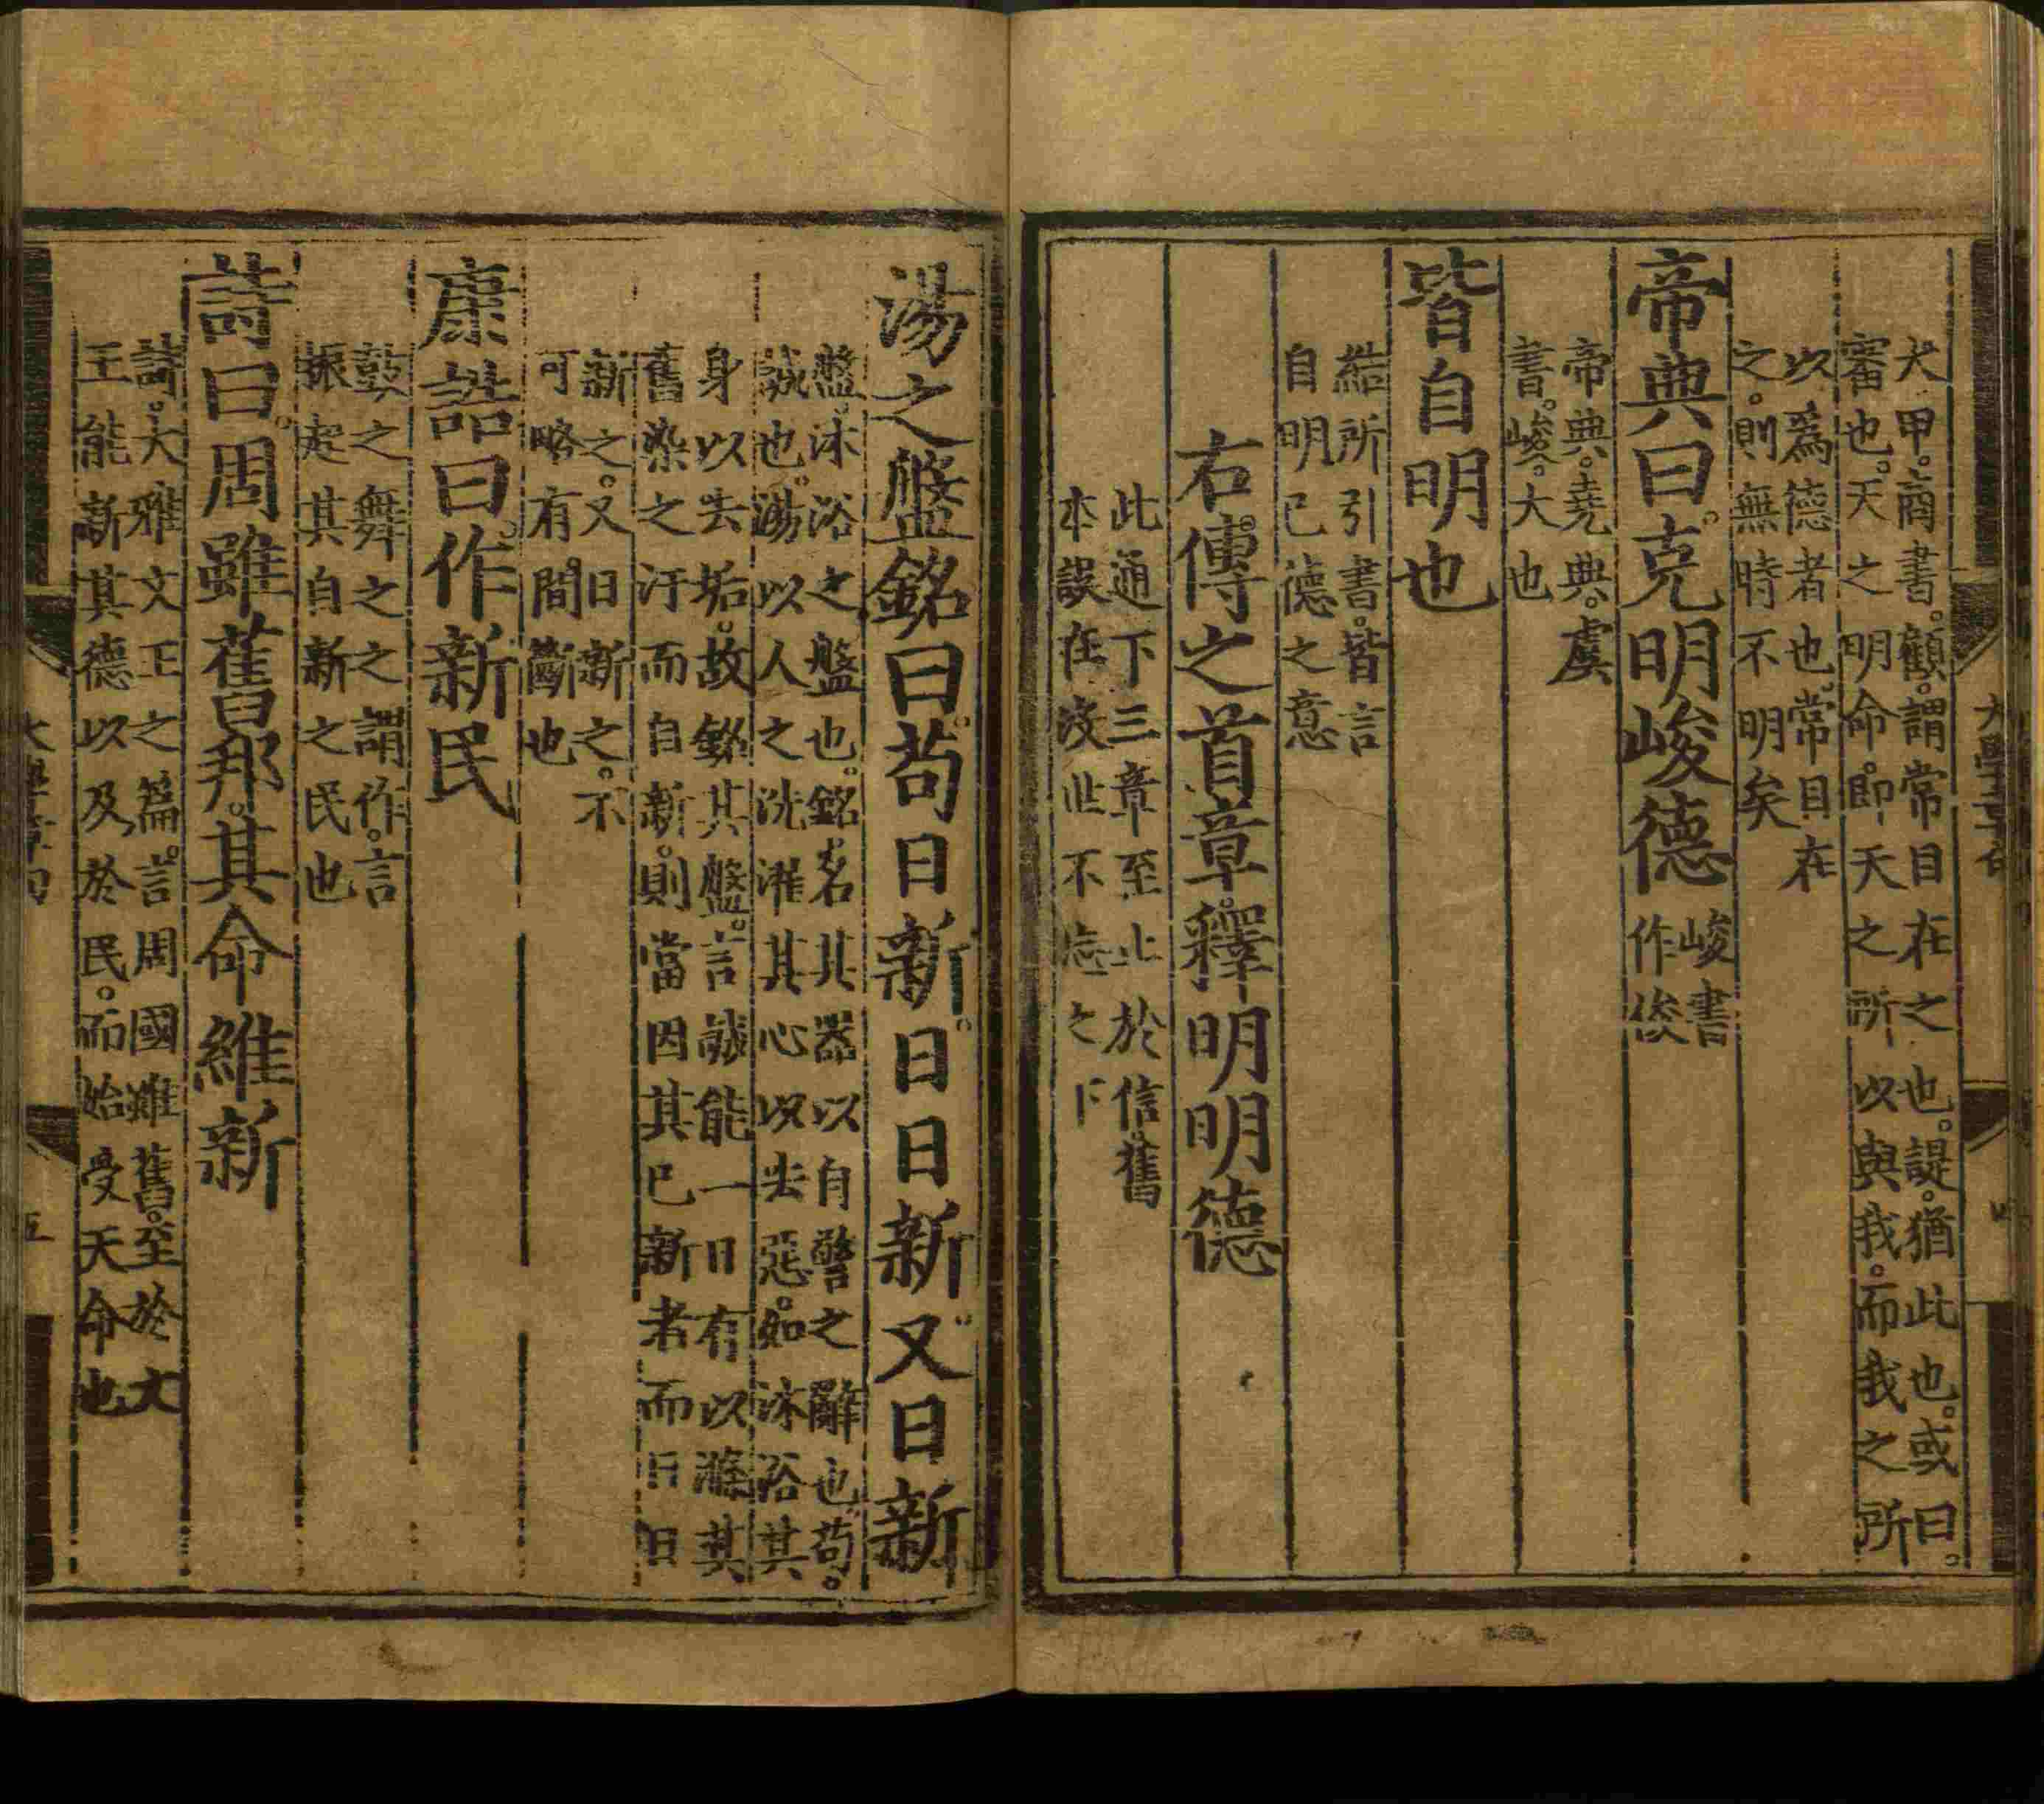 大甲。商書。顧。謂常目在之也。諟。猶此也。或曰。
審也。天之明命。即天之所以與我。而我之所
以爲德者也。常目在
之。則無時不明矣
帝典曰。克明峻德
峻書
作俊
帝典。堯典。虞
書。峻。大也
皆自明也
結所引書。皆言
自明己德之意
右傳之首章。釋明明德
此通下三章至止於信。舊
本誤在沒世不忘之下
湯之盤銘曰。苟日新。日日新。又日新
盤。沐浴之盤也。銘。名其器以自警之辭也。苟。
誠也。湯以人之洗濯其心以去惡。如沐浴其
身以去垢。故銘其盤。言誠能一日有以滌其
舊染之汙而自新。則當因其已新者而日日
新之。又日新之。不
可略有間斷也
康誥曰。作新民
鼓之舞之之謂作。言
振起其自新之民也
詩曰。周雖舊邦。其命維新
詩。大雅文王之篇。言周國雖舊。至於文
王能新其德以及於民。而始受天命也
大學章句
五
大學章句
四